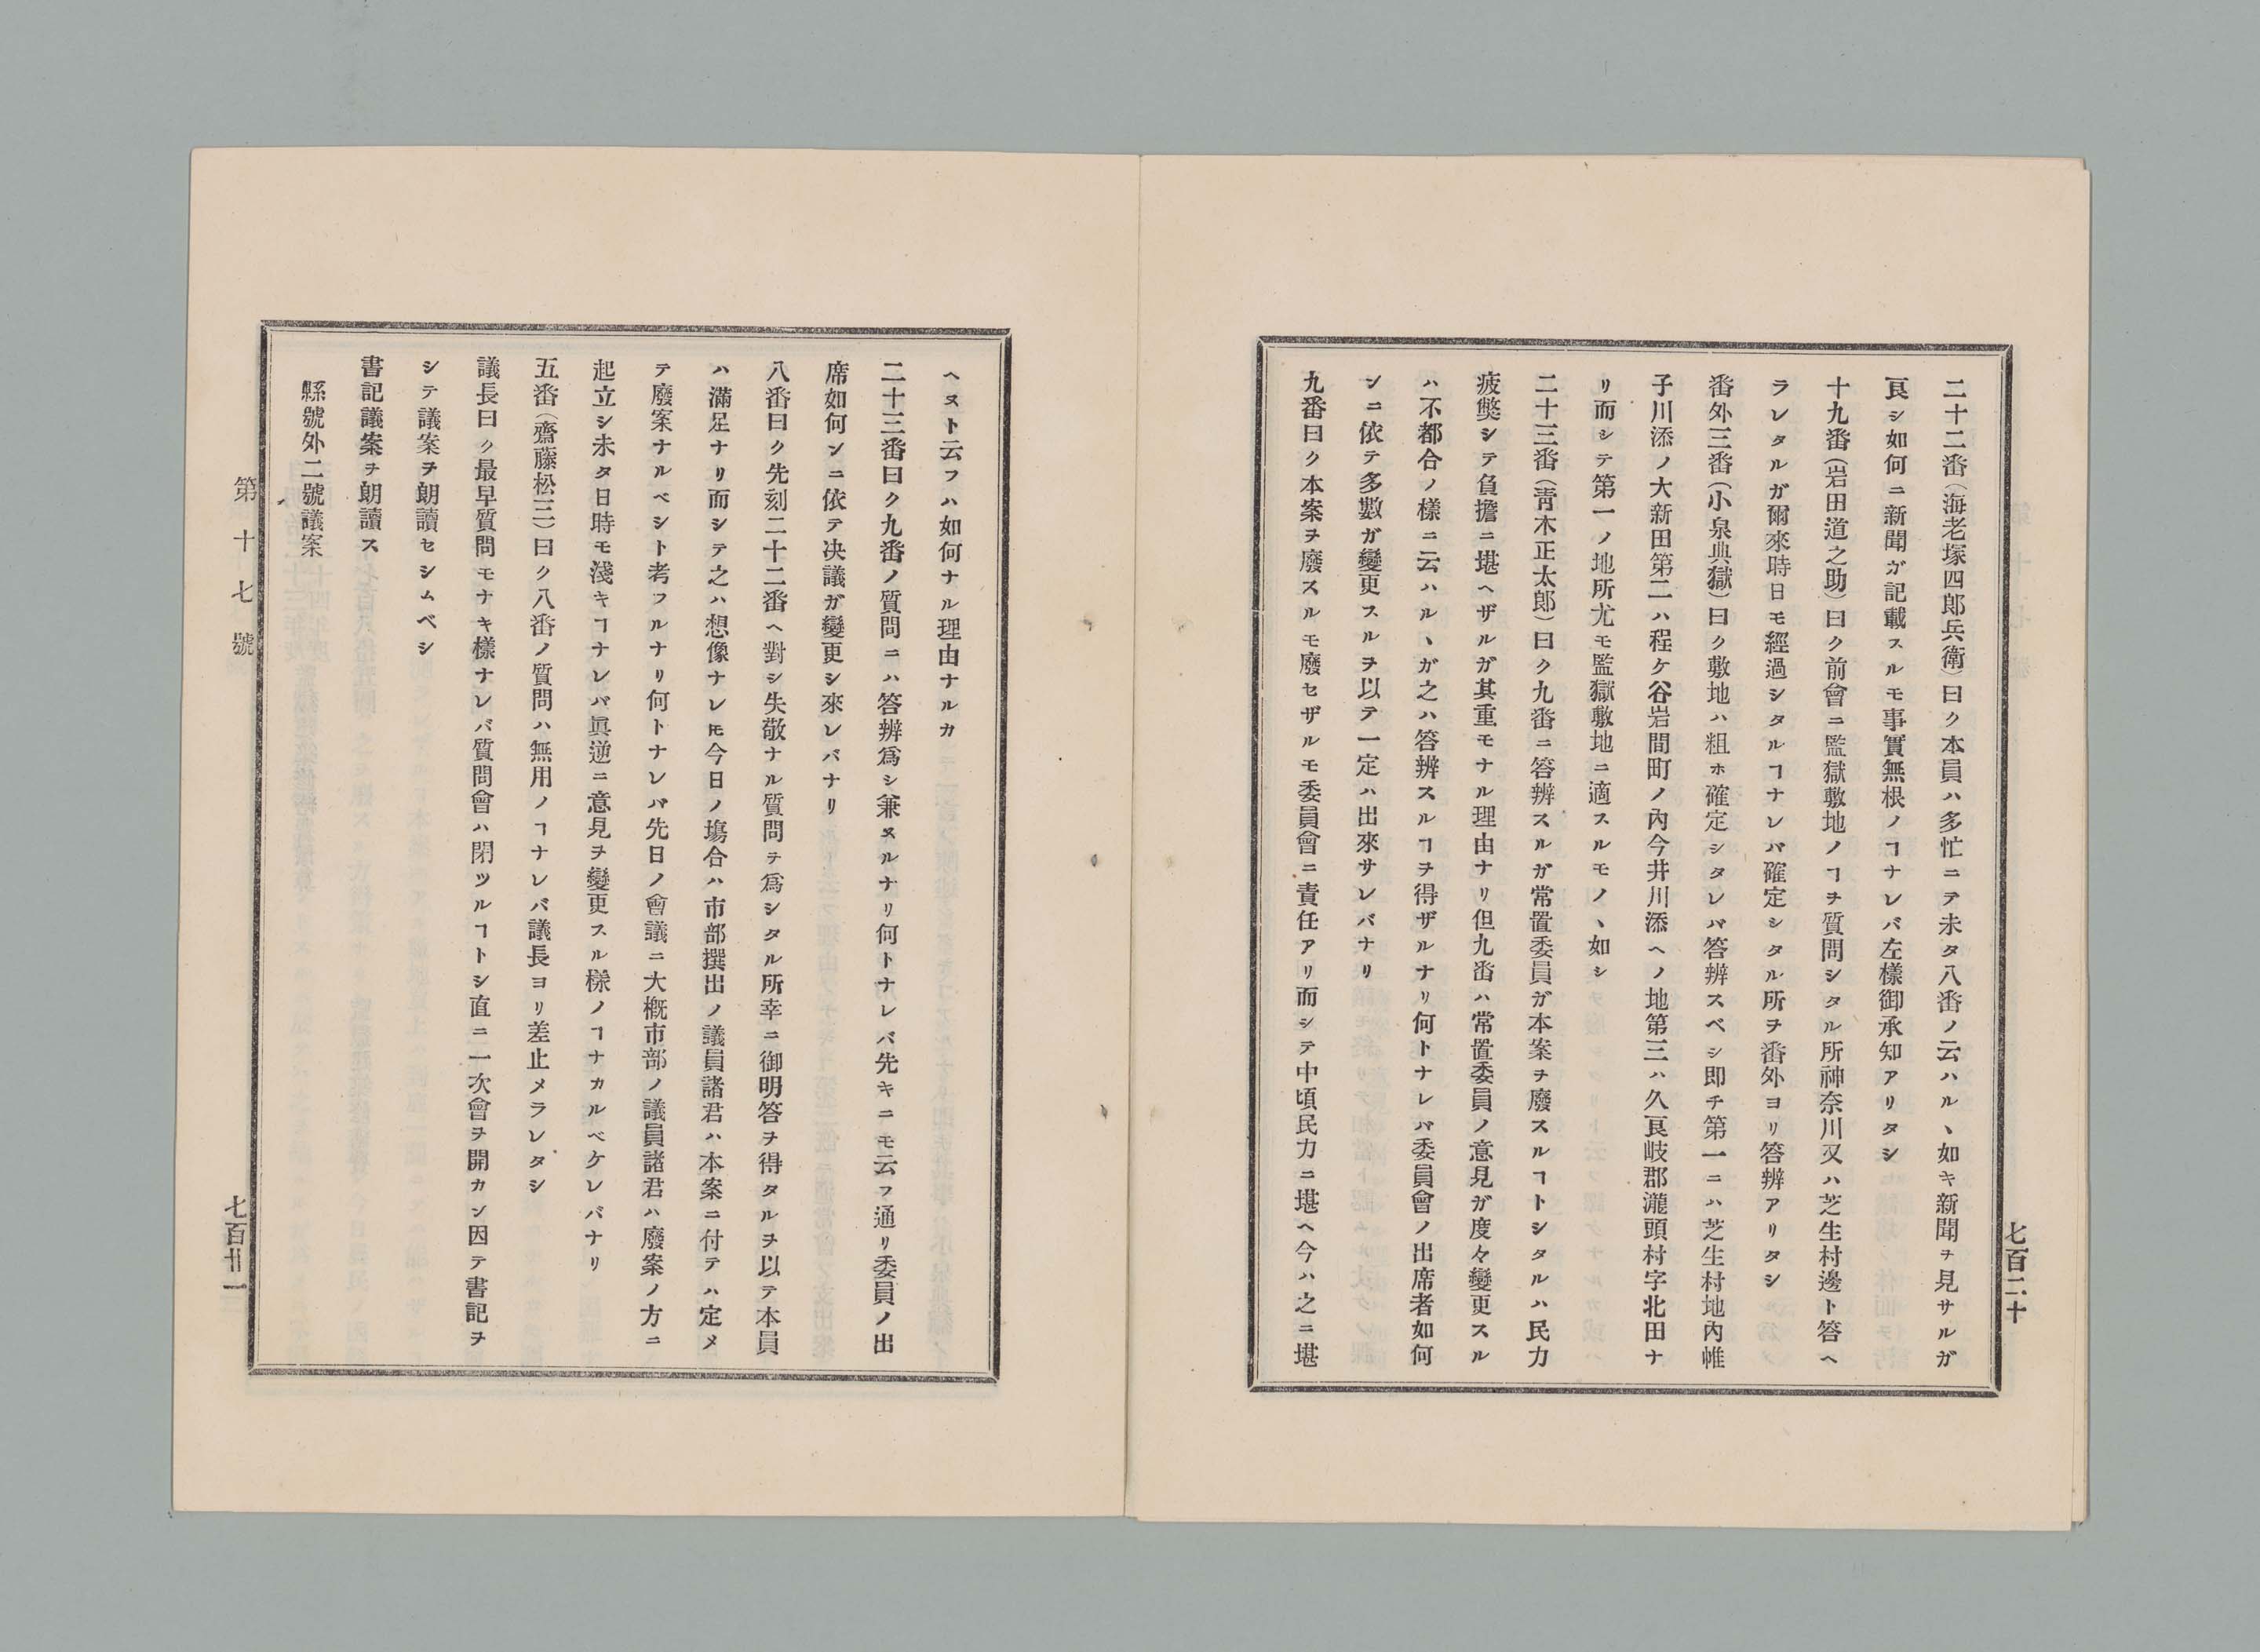 七百二十
二十二番(海老塚四郎兵衛)曰ク本員ハ多忙ニテ未タ八番ノ云ハルヽ如キ新聞ヲ見サルガ
良シ如何ニ新聞ガ記載スルモ事實無根ノヿナレバ左樣御承知アリタシ
十九番(岩田道之助)曰ク前會ニ監獄敷地ノヿヲ質問シタル所神奈川又ハ芝生村邊ト答ヘ
ラレタルガ爾來時日モ經過シタルヿナレバ確定シタル所ヲ番外ヨリ答辨アリタシ
番外三番(小泉典獄)曰ク敷地ハ粗ホ確定シタレバ答辨スベシ即チ第一ニハ芝生村地內帷
子川添ノ大新田第二ハ程ケ谷岩間町ノ內今井川添ヘノ地第三ハ久良岐郡瀧頭村字北田ナ
リ而シテ第一ノ地所尤モ監獄敷地ニ適スルモノヽ如シ
二十三番(靑木正太郎)曰ク九番ニ答辨スルガ常置委員ガ本案ヲ廢スルヿトシタルハ民力
疲獘シテ負擔ニ堪ヘザルガ其重モナル理由ナリ但九番ハ常置委員ノ意見ガ度々變更スル
ハ不都合ノ樣ニ云ハルヽガ之ハ答辨スルヿヲ得ザルナリ何トナレバ委員會ノ出席者如何
ンニ依テ多數ガ變更スルヲ以テ一定ハ出來サレバナリ
九番曰ク本案ヲ廢スルモ廢セザルモ委員會ニ責任アリ而シテ中頃民力ニ堪ヘ今ハ之ニ堪
ヘヌト云フハ如何ナル理由ナルカ
二十三番曰ク九番ノ質問ニハ答辨爲シ兼ヌルナリ何トナレバ先キニモ云フ通リ委員ノ出
席如何ンニ依テ决議ガ變更シ來レバナリ
八番曰ク先刻二十二番ヘ對シ失敬ナル質問ヲ爲シタル所幸ニ御明答ヲ得タルヲ以テ本員
ハ滿足ナリ而シテ之ハ想像ナレ𪜈今日ノ塲合ハ市部撰出ノ議員諸君ハ本案ニ付テハ定メ
テ廢案ナルベシト考フルナリ何トナレバ先日ノ會議ニ大槪市部ノ議員諸君ハ廢案ノ方ニ
起立シ未タ日時モ淺キヿナレバ眞逆ニ意見ヲ變更スル樣ノヿナカルベケレバナリ
五番(齋藤松三)曰ク八番ノ質問ハ無用ノヿナレバ議長ヨリ差止メラレタシ
議長曰ク最早質問モナキ樣ナレバ質問會ハ閉ツルヿトシ直ニ一次會ヲ開カン因テ書記ヲ
シテ議案ヲ朗讀セシムベシ
書記議案ヲ朗讀ス
縣號外二號議案
第十七號
七百廿一